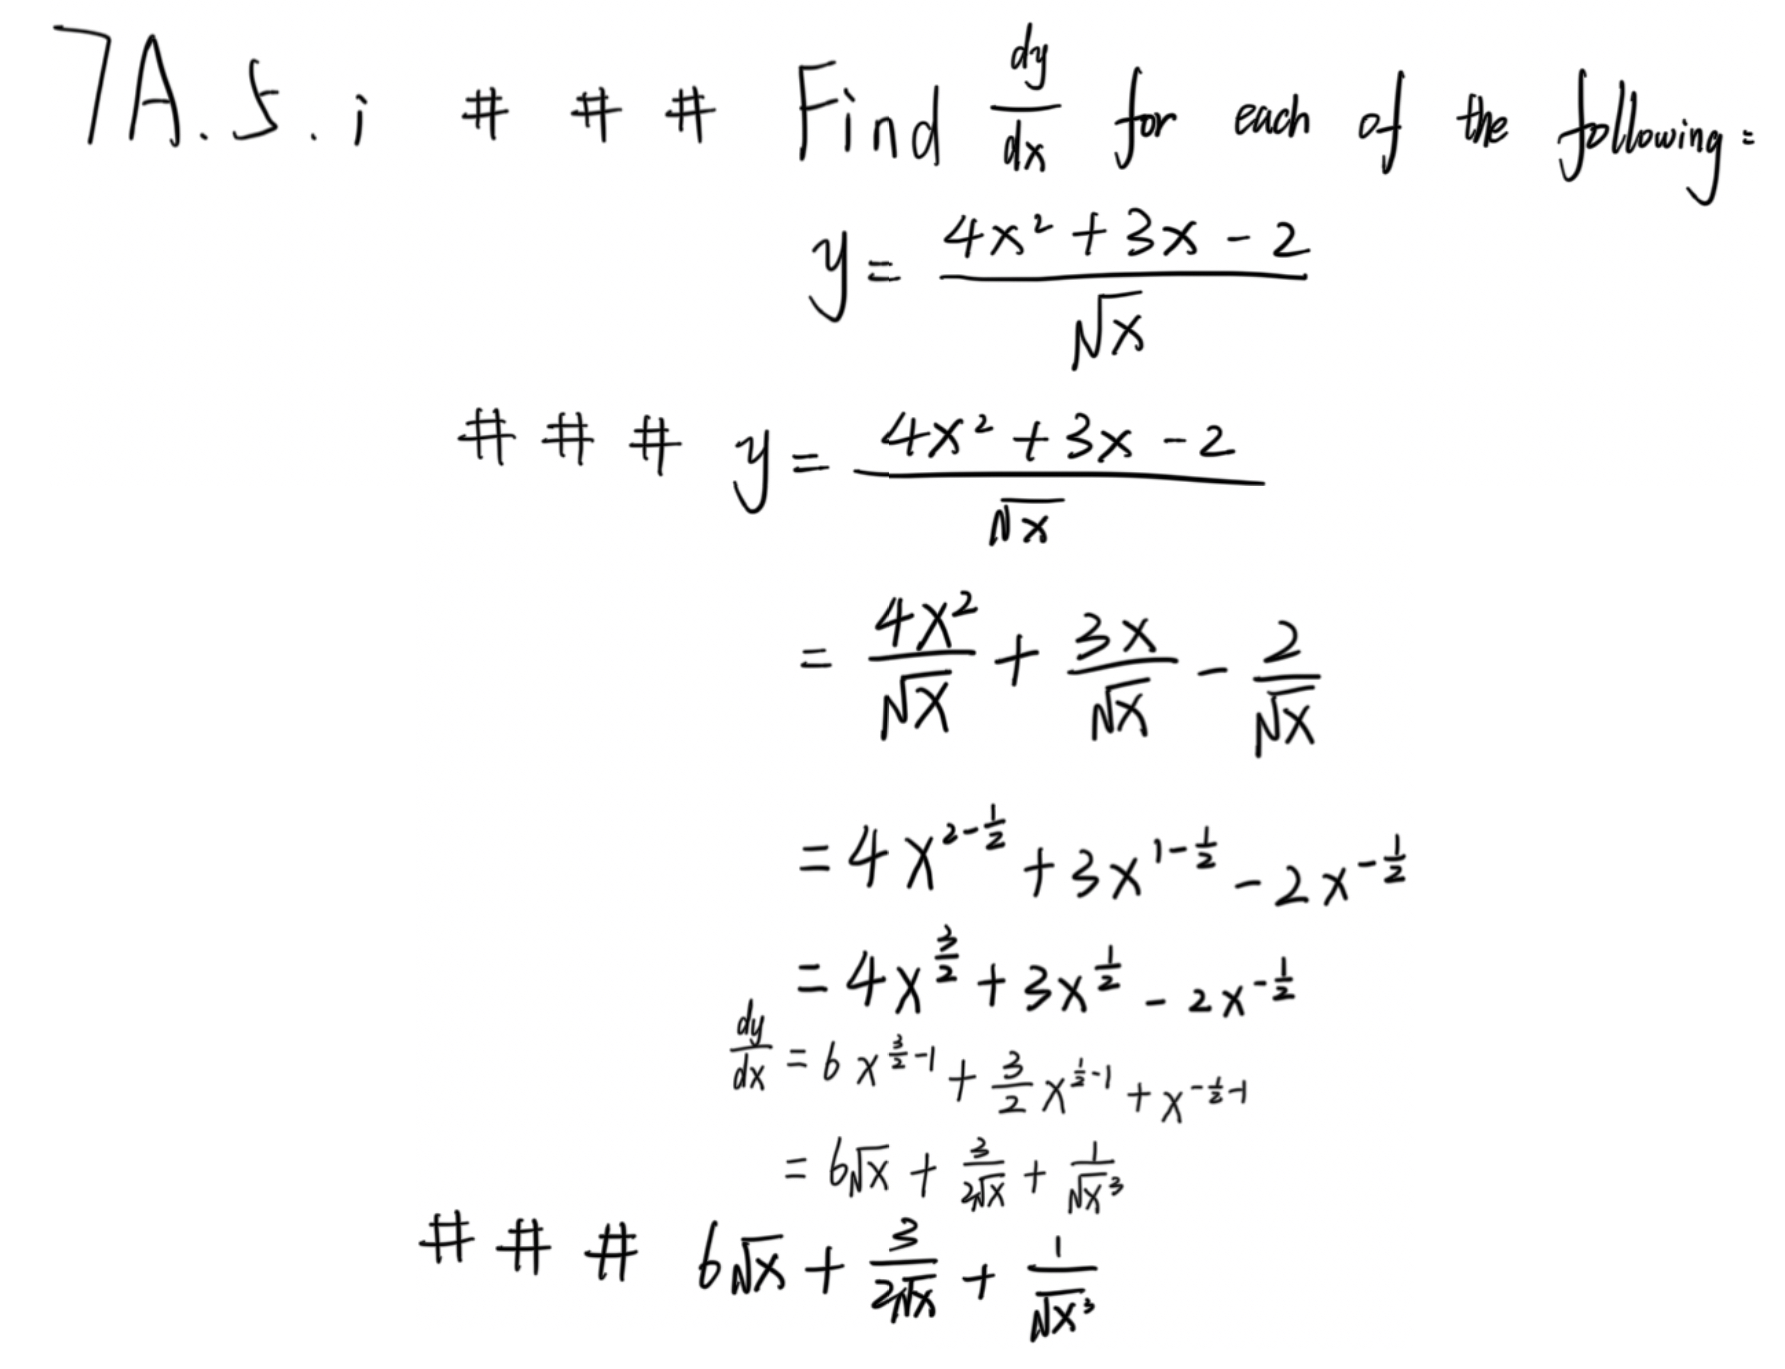 7A.5.i # # # Find \frac{dy}{dx} for each of the following:
y = \frac{4x^2 + 3x - 2}{\sqrt{x}}
# # # y = \frac{4x^2 + 3x - 2}{\sqrt{x}}
= \frac{4x^2}{\sqrt{x}} + \frac{3x}{\sqrt{x}} - \frac{2}{\sqrt{x}}
= 4x^{2-\frac{1}{2}} + 3x^{1-\frac{1}{2}} - 2x^{-\frac{1}{2}}
= 4x^{\frac{3}{2}} + 3x^{\frac{1}{2}} - 2x^{-\frac{1}{2}}
\frac{dy}{dx} = 6x^{\frac{3}{2}-1} + \frac{3}{2}x^{\frac{1}{2}-1} + x^{-\frac{1}{2}-1}
= 6\sqrt{x} + \frac{3}{2\sqrt{x}} + \frac{1}{\sqrt{x}^3}
# # # 6\sqrt{x} + \frac{3}{2\sqrt{x}} + \frac{1}{\sqrt{x}^3}